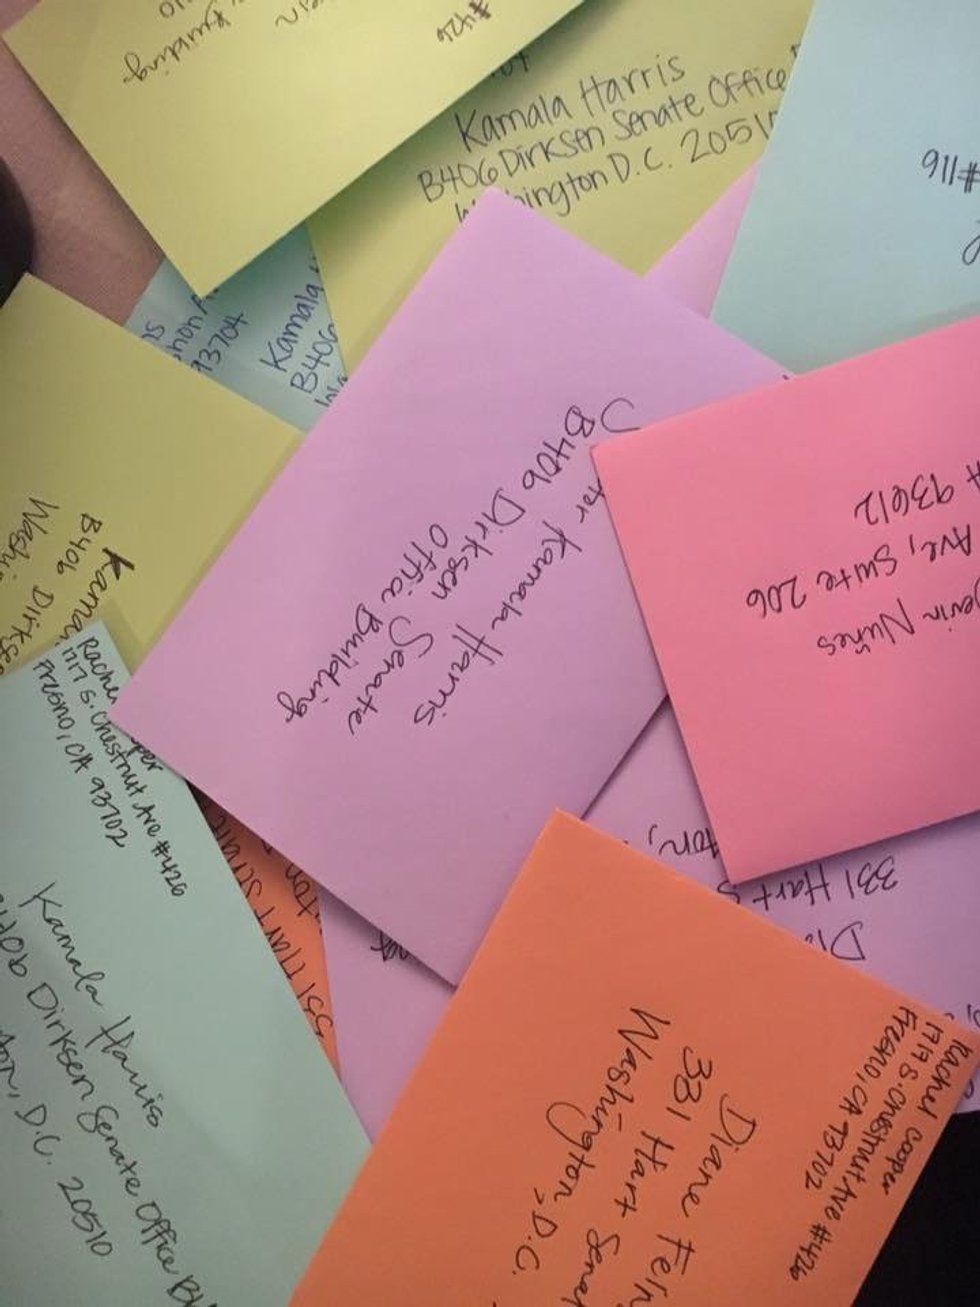 Building
#426
Kamala Harris
B406 Dirksen Senate Office
Washington D.C. 20510
#116
93704
Kamala
B406
Senator Kamala Harris
B406 Dirksen Senate
Office Building
93612
Ave, Suite 206
Devin Nuñes
Kama
B406 Dirkse
Washi
Rachel Cooper
1717 S. Chestnut Ave #426
Fresno, CA 93702
Kamala Harris
B406 Dirksen Senate Office Bu
D.C. 20510
331 Hart Senat
331 Hart S
Rachel Cooper
1717 S. Chestnut Ave #426
Fresno, CA 93702
Diane Fein
331 Hart Senat
Washington, D.C.